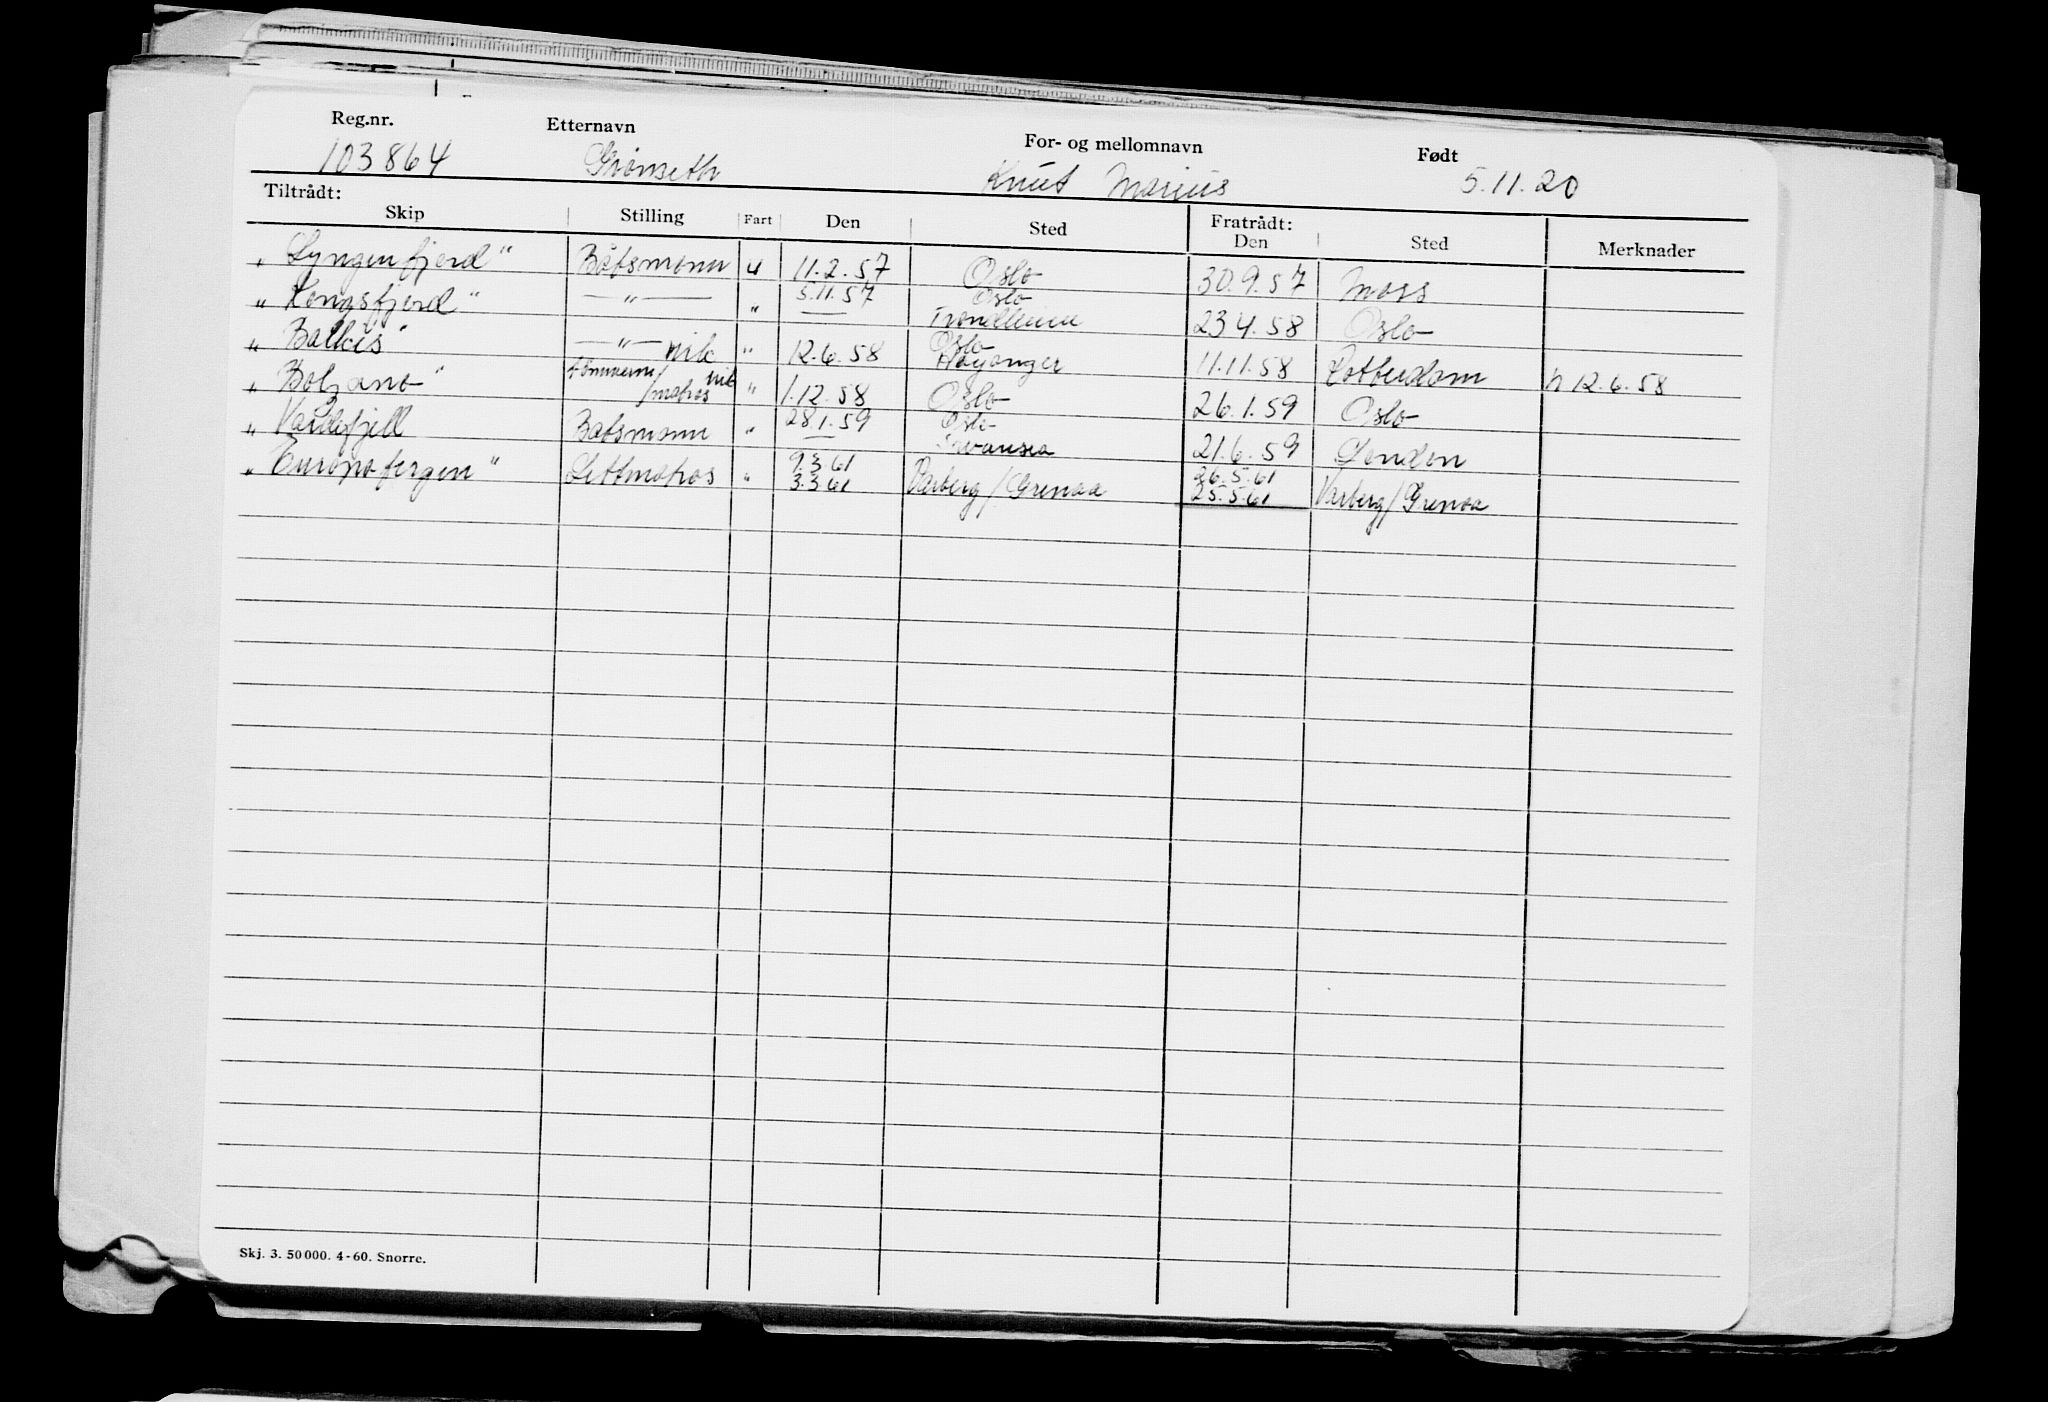 Reg.nr. Etternavn For- og mellomnavn Født
103864 Grønseth Knut Marius 5.11.20
Tiltrådt: Fratrådt:
Skip Stilling Fart Den Sted Den Sted Merknader
"Lyngenfjord" Båtsmann u 11.2.57 Oslo 30.9.57 Moss
"Kongsfjord" — " — " 5.11.57 Oslo Trondheim 23.4.58 Oslo
"Balkis" — " — vik " 12.6.58 Oslo Høyanger 11.11.58 Rotterdam h 12.6.58
"Bolzano" tømmerm/matros vik " 1.12.58 Oslo 26.1.59 Oslo
"Vardefjell Båtsmann " 28.1.59 Oslo Swansea 21.6.59 London
"Europafergen" Lettmatros " 9.3.61 3.3.61 Varberg/Grenaa 26.5.61 25.5.61 Varberg/Grenaa
Skj. 3. 50 000. 4-60. Snorre.